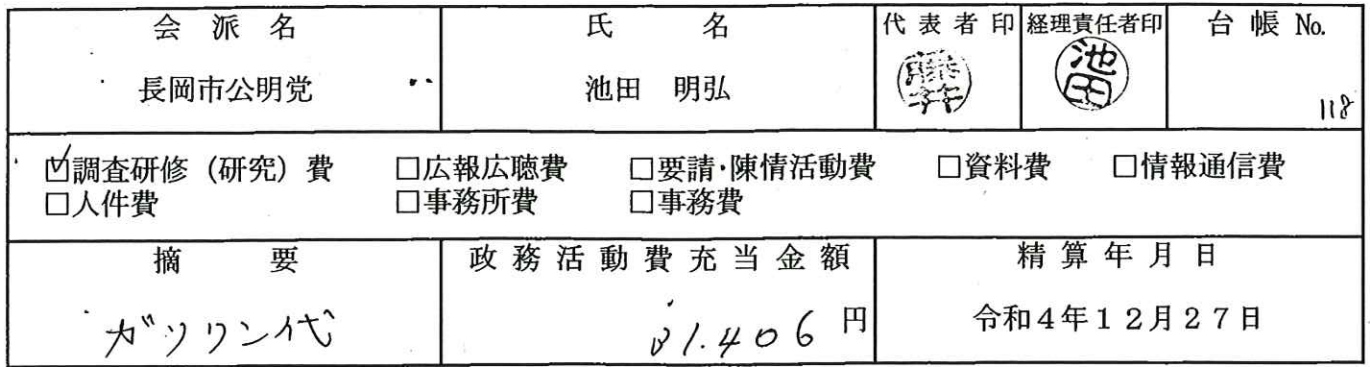 会派名 氏名 代表者印 経理責任者印 台帳 No.
長岡市公明党 池田 明弘 池田 118
☑調査研修（研究）費 □広報広聴費 □要請・陳情活動費 □資料費 □情報通信費
□人件費 □事務所費 □事務費
摘要 政務活動費充当金額 精算年月日
ガソリン代 31.406 円 令和4年12月27日